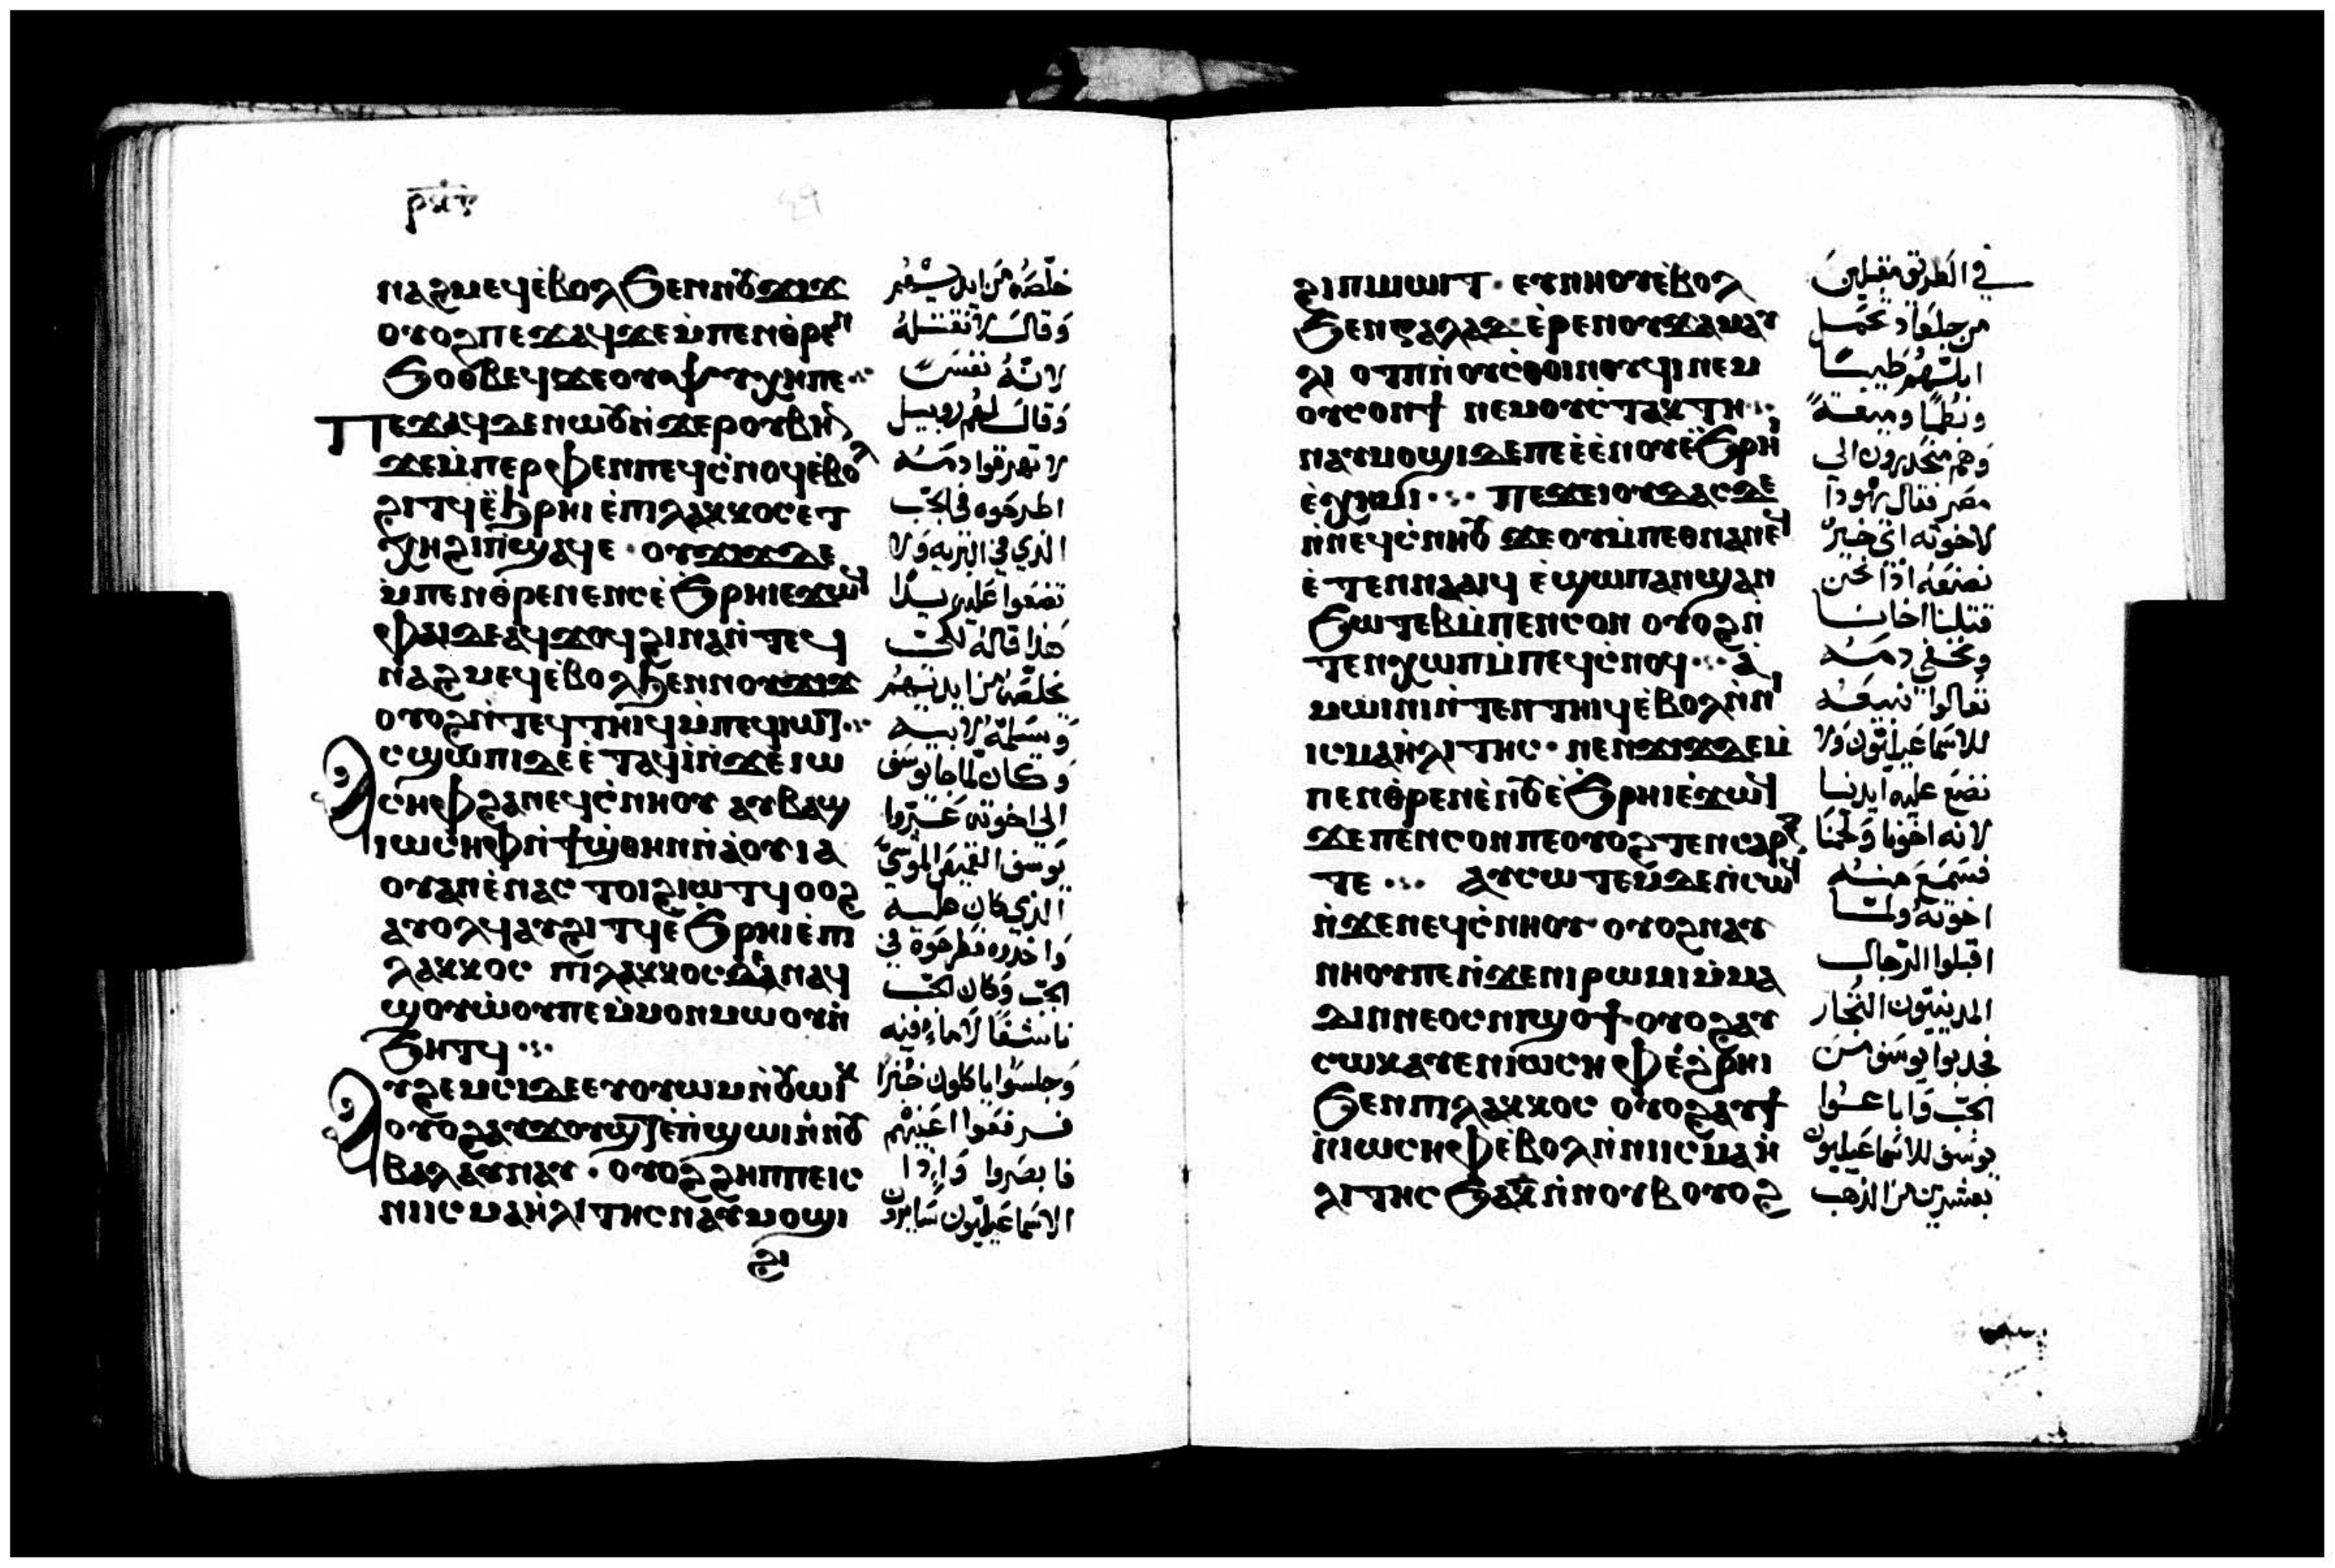 ⲛⲁϩⲙⲉϥⲉ̀ⲃⲟⲗϧⲉⲛⲛⲟⲩϫⲓϫ
ⲟⲩⲟϩⲡⲉϫⲁϥϫⲉⲙ̀ⲡⲉⲛⲑ̀ⲣⲉⲛ
ϧⲟⲑⲃⲉϥϫⲉⲟⲩⲯⲩⲭⲏⲡⲉ
Ⲡⲉϫⲁϥⲇⲉⲛⲱⲟⲩⲛ̀ϫⲉⲣⲟⲩⲃⲏⲗ
ϫⲉⲙ̀ⲡⲉⲣⲫⲉⲛⲡⲉϥⲥ̀ⲛⲟϥⲉ̀ⲃⲟⲗ
ϩⲓⲧϥⲉ̀ϧⲣⲏⲓⲉ̀ⲡⲓⲗⲁⲕⲕⲟⲥⲉⲧ
ⲭⲏϩⲓⲡ̀ϣⲁϥⲉ · ⲟⲩϫⲓϫⲇⲉ
ⲙ̀ⲡⲉⲛⲑ̀ⲣⲉⲛⲉⲛⲥⲉ̀ϧⲣⲏⲓⲉϫⲱϥ
ⲫⲁⲓⲇⲉⲁϥϫⲟϥϩⲓⲛⲁⲛ̀ⲧⲉϥ
ⲛⲁϩⲙⲉϥⲉ̀ⲃⲟⲗϧⲉⲛⲛⲟⲩϫⲓϫ
ⲟⲩⲟϩⲛ̀ⲧⲉϥⲧⲏⲓϥⲙ̀ⲡⲉϥⲓⲱⲧ
Ⲁⲥϣⲱⲡⲓⲇⲉⲉ̀ⲧⲁϥⲓ̀ⲛ̀ϫⲉⲓⲱ
ⲥⲏⲫϩⲁⲛⲉϥⲥ̀ⲛⲏⲟⲩ ⲁⲩⲃⲁϣ
ⲓⲱⲥⲏⲫⲛ̀ϯϣ̀ⲑⲏⲛⲛ̀ⲁⲟⲩⲓⲁ
ⲟⲩⲁⲛⲉ̀ⲛⲁⲥⲧⲟⲓϩⲓⲱⲧϥ ⲟⲟϩ
ⲁⲩⲟⲗϥⲁⲩϩⲓⲧϥⲉ̀ϧⲣⲏⲓⲉ̀ⲡⲓ
ⲗⲁⲕⲕⲟⲥ ⲡⲓⲗⲁⲕⲕⲟⲥⲇⲉⲛⲁϥ
ϣⲟⲩⲱ̀ⲟⲩⲡⲉⲙ̀ⲙⲟⲛⲙⲱⲟⲩⲛ̀
ϧⲏⲧϥ
Ⲁⲩϩⲉⲙⲥⲓⲇⲉⲉⲩⲟⲩⲱⲙⲛ̀ⲟⲩⲱⲓⲕ
ⲟⲩⲟϩⲁⲩϫⲟⲩϣⲧⲉ̀ⲡ̀ϣⲱⲓⲛ̀ⲛⲟⲩ
ⲃⲁⲗⲁⲩⲛⲁⲩ · ⲟⲩⲟϩϩⲏⲡⲡⲉⲓⲥ
ⲛⲓⲓⲥⲙⲁⲏ̀ⲗⲓⲧⲏⲥⲛⲁⲩⲙⲟϣⲓ
ϩⲓ
خلصه من ايديهم
وقال لا نقتله
لانه نفس
وقال لهم روبيل
لا تهرقوا دمه
اطرحوه في الجب
الذي في البريه ولا
تضعوا عليه يدا
هذا قاله لكي
يخلصه من ايديهم
ويسلمه لابيه
وكان لما جا يوسف
الى اخوته عروا
يوسف القميص الموشى
الذي كان عليه
واخذوه فطرحوه في
الجب وكان الجب
ناشفا لا ماء فيه
وجلسوا ياكلون خبزا
فرفعوا اعينهم
فابصروا واذا
الاسماعيليون سايرون
ϩⲓⲡⲓⲙⲱⲓⲧ · ⲉⲩⲛⲏⲟⲩⲉ̀ⲃⲟⲗ
ϧⲉⲛⲅⲁⲗⲁⲁⲇ·ⲉ̀ⲣⲉⲛⲟⲩϫⲁⲙⲁⲩ
ⲗⲓ ⲟⲧⲡⲛ̀ⲟⲩⲥ̀ⲑⲟⲓⲛⲟⲩϥⲓⲛⲉⲙ
ⲟⲩⲥⲟⲛϯ ⲛⲉⲙⲟⲩⲥ̀ⲧⲁⲕⲧⲏ
ⲛⲁⲩⲙⲟϣⲓⲇⲉⲡⲉⲉ̀ⲉ̀ⲛⲟⲩⲉ̀ϧⲣⲏⲓ
ⲉ̀ⲭⲏⲙⲓ Ⲡⲉϫⲉⲓⲟⲩⲇⲁⲥⲇⲉ
ⲛ̀ⲛⲉϥⲥ̀ⲛⲏⲟⲩ ϫⲉⲟⲩⲙ̀ⲡⲉⲑⲛⲁⲛⲉϥ
ⲉ̀ⲧⲉⲛⲛⲁⲁⲓϥ ⲉ̀ϣⲱⲡⲁⲛϣⲁⲛ
ϧⲱⲧⲉⲃⲙ̀ⲡⲉⲛⲥⲟⲛ ⲟⲩⲟϩⲛ̀
ⲧⲉⲛⲭⲱⲡⲙ̀ⲡⲉϥⲥ̀ⲛⲟϥ ⲁ̀
ⲙⲱⲓⲛⲓⲛ̀ⲧⲉⲛⲧⲏⲓϥⲉ̀ⲃⲟⲗⲛ̀ⲛⲓ
ⲓⲥⲙⲁⲏ̀ⲗⲓⲧⲏⲥ · ⲛⲉⲛϫⲓϫⲇⲉⲙ̀
ⲡⲉⲛⲑ̀ⲣⲉⲛⲉ̀ⲛⲟⲩⲉ̀ϧⲣⲏⲓⲉ̀ϫⲱϥ
ϫⲉⲡⲉⲛⲥⲟⲛⲡⲉⲟⲩⲟϩⲧⲉⲛⲥⲁⲣⲝ
ⲧⲉ ⲁⲩⲥⲱⲧⲉⲙⲇⲉⲛ̀ⲥⲱϥ
ⲛ̀ϫⲉⲛⲉϥⲥ̀ⲛⲏⲟⲩ ⲟⲩⲟϩⲛⲁⲩ
ⲛⲏⲟⲩⲡⲉⲛ̀ϫⲉⲛⲓⲣⲱⲙⲓⲙ̀ⲙⲁ
ⲇⲓⲛⲛⲉⲟⲥⲛⲓϣⲟϯ·ⲟⲩⲟϩⲁⲩ
ⲥⲱⲕⲁⲩⲉⲛⲓⲱⲥⲏⲫⲉ̀ϩⲣⲏⲓ
ϧⲉⲛⲡⲓⲗⲁⲕⲕⲟⲥ ⲟⲩⲟϩⲁⲩϯ
ⲛ̀ⲓⲱⲥⲏⲫⲉ̀ⲃⲟⲗⲛ̀ⲛⲓⲓⲥⲙⲁⲏ̀
ⲗⲓⲧⲏⲥ ϧⲁⲕ̅ⲛ̀ⲛⲟⲩⲃⲟⲩⲟϩ
في الطريق مقبلين
من جلعاد تحمل
ابلهم طيبا
وهم منحدرون الى
مصر فقال يهودا
لاخوته اي خير
نصنعه اذا نحن
قتلنا اخانا
ونخفي دمه
تعالوا نبيعه
للاسماعيليون ولا
نضع عليه ايدينا
لانه اخونا ولحمنا
فسمع منه
اخوته ولما
اقبلوا الرجال
المدينيون التجار
فجذبوا يوسف من
الجب وباعوا
يوسف للاسماعيليون
بعشرين من الذهب